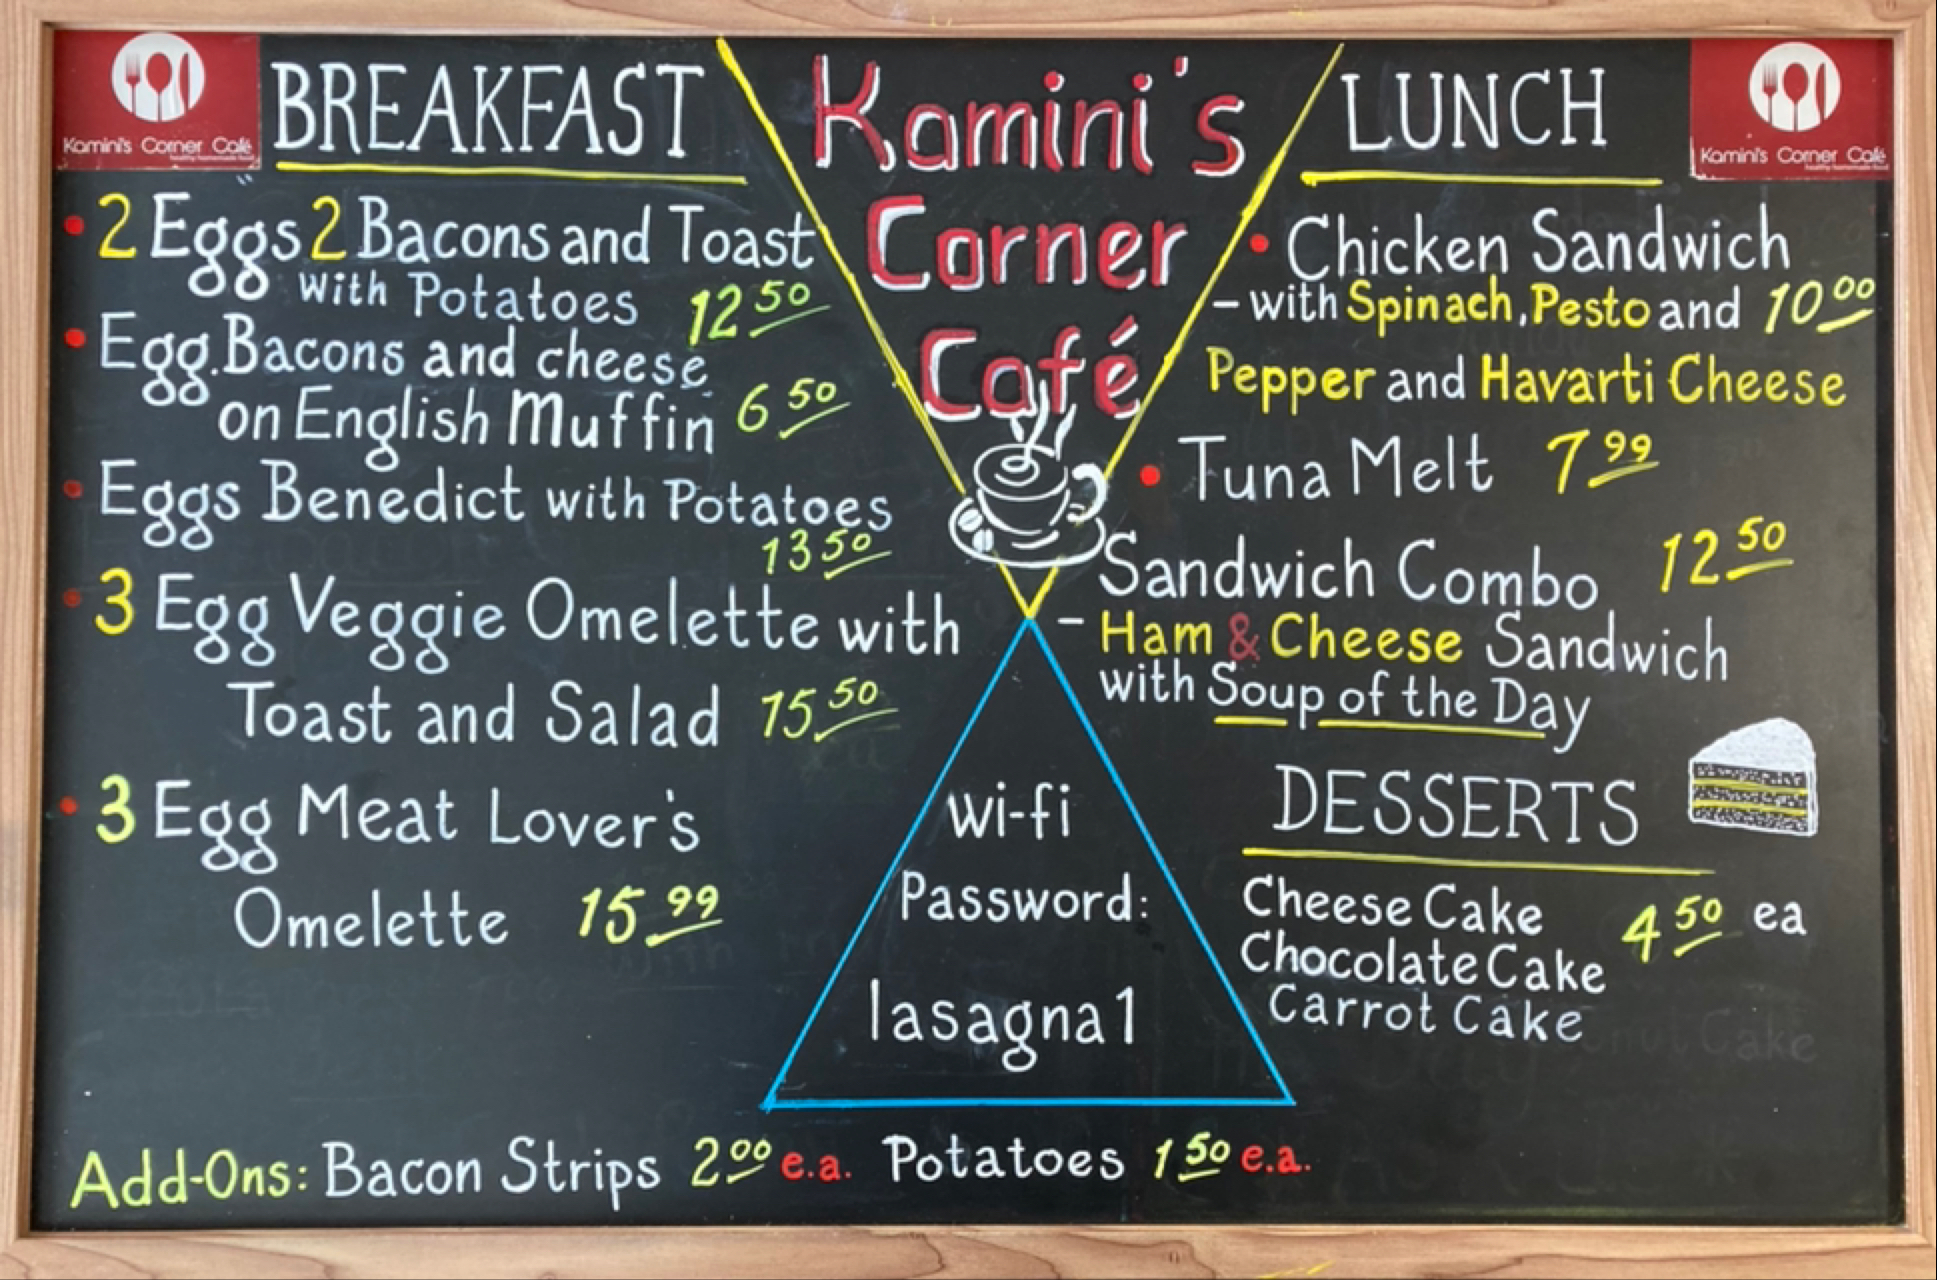 Kamini's Corner Café
healthy homemade food
BREAKFAST
2 Eggs 2 Bacons and Toast
with Potatoes 12 50
Egg. Bacons and cheese
on English Muffin 6 50
Eggs Benedict with Potatoes
13 50
3 Egg Veggie Omelette with
Toast and Salad 15 50
3 Egg Meat Lover's
Omelette 15 99
Kamini's
Corner
Café
wi-fi
Password:
lasagna1
LUNCH
Kamini's Corner Café
healthy homemade food
Chicken Sandwich
- with Spinach, Pesto and 10 00
Pepper and Havarti Cheese
Tuna Melt 7 99
Sandwich Combo 12 50
- Ham & Cheese Sandwich
with Soup of the Day
DESSERTS
Cheese Cake 4 50 ea
Chocolate Cake
Carrot Cake
Add-Ons: Bacon Strips 2 00 e.a. Potatoes 1 50 e.a.